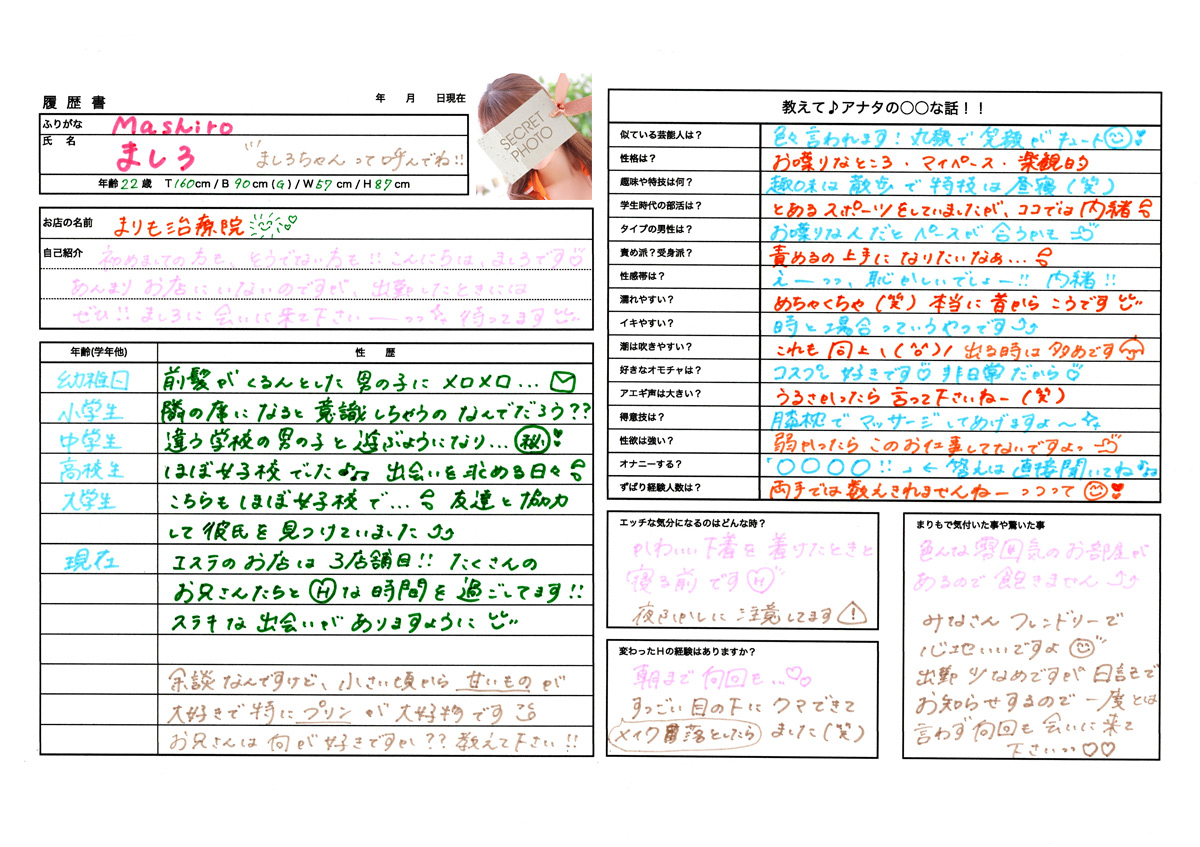 履歴書
年 月 日現在
ふりがな Mashiro
氏名 ましろ ましろちゃんって呼んでね!!
年齢22歳 T160cm / B 90cm (G) / W57cm / H87cm
SECRET PHOTO
お店の名前 まりも治療院
自己紹介 初めましての方も、そうでない方も!! こんにちは、ましろです
あんまりお店にいないのですが、出勤したときには
ぜひ!! ましろに会いに来て下さいーーっっ 待ってます
年齢(学年他) 性歴
幼稚園 前髪がくるんとした男の子にメロメロ...
小学生 隣の席になると意識しちゃうのなんでだろう??
中学生 違う学校の男の子と遊ぶようになり...㊙
高校生 ほぼ女子校でした♪♫ 出会いを求める日々
大学生 こちらもほぼ女子校で... 友達と協力
して彼氏を見つけていました
現在 エステのお店は3店舗目!! たくさんの
お兄さんたちとⒽな時間を過ごしてます!!
ステキな出会いがありますように
余談なんですけど、小さい頃から甘いものが
大好きで特にプリンが大好物です
お兄さんは何が好きですか?? 教えて下さい!!
教えて♪アナタの○○な話!!
似ている芸能人は? 色々言われます! 丸顔で笑顔がキュート
性格は? お喋りなところ・マイペース・楽観的
趣味や特技は何? 趣味は散歩で特技は昼寝(笑)
学生時代の部活は? とあるスポーツをしていましたが、ココでは内緒
タイプの男性は? お喋りな人だとペースが合うかも
責め派?受身派? 責めるの上手になりたいなぁ...
性感帯は? えーっっ、恥かしいでしょー!! 内緒!!
濡れやすい? めちゃくちゃ(笑) 本当に昔からこうです
イキやすい? 時と場合っていうやつです
潮は吹きやすい? これも同上\(^o^)/ 出る時は多めです
好きなオモチャは? コスプレ好きです♡ 非日常だから♡
アエギ声は大きい? うるさかったら言って下さいねー(笑)
得意技は? 膝枕でマッサージしてあげますよ〜
性欲は強い? 弱かったらこのお仕事してないですよっ
オナニーする? 「○○○○!!」← 答えは直接聞いてね♪♫
ずばり経験人数は? 両手では数えきれませんねーっっって
エッチな気分になるのはどんな時?
かわいい下着を着けたときと
寝る前ですⒽ
夜ふかしに注意してます
変わったHの経験はありますか?
朝まで何回も...♡♡
すっごい目の下にクマできて
メイク落としたら ました(笑)
まりもで気付いた事や驚いた事
色んな雰囲気のお部屋が
あるので飽きません
みなさんフレンドリーで
心地いいですよ
出勤少なめですが日記で
お知らせするので一度とは
言わず何回も会いに来て
下さいっっ♡♡